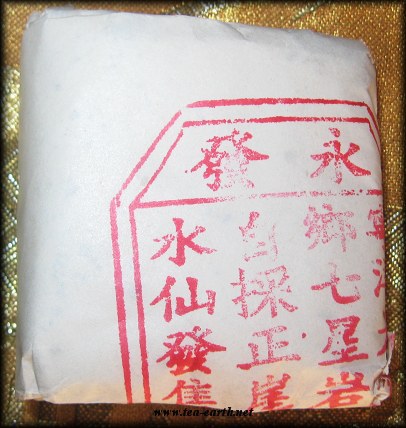 永發
鄉七星岩
自採正崖
水仙發售
www.tea-earth.net